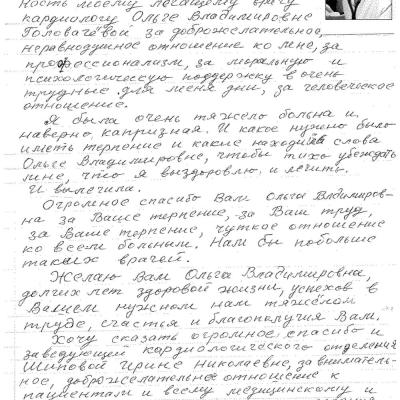 ность моему лечащему врачу
кардиологу Ольге Владимировне
Головачёвой за доброжелательное,
неравнодушное отношение ко мне, за
профессионализм, за моральную и
психологическую поддержку в очень
трудные для меня дни, за человеческое
отношение.
Я была очень тяжело больна и
наверно капризная. И какое нужно было
иметь терпение и какие находила слова
Ольге Владимировне, чтобы тихо убеждать
мне, что я выздоровлю и лечить.
И вылечила.
Огромное спасибо Вам Ольга Владимиров-
на за Ваше терпение, за Ваш труд,
за Ваше терпение, чуткое отношение
ко всем больным. Нам бы побольше
таких врачей.
Желаю Вам Ольга Владимировна,
долгих лет здоровой жизни, успехов в
Вашем нужном нам тяжёлом
труде, счастья и благополучия Вам.
Хочу сказать огромное спасибо и
заведующей кардиологического отделения
Шиповой Ирине Николаевне, за вниматель-
ное, доброжелательное отношение к
пациентам и всему медицинскому и